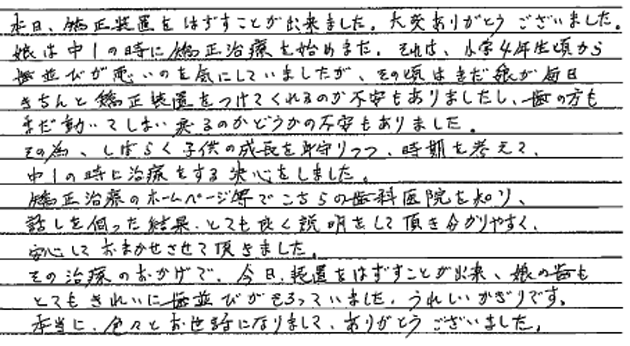 本日、矯正装置をはずすことが出来ました。大変ありがとうございました。
娘は中1の時に矯正治療を始めました。それは、小学4年生頃から
歯並びが悪いのを気にしていましたが、その頃はまだ娘が毎日
きちんと矯正装置をつけてくれるのか不安もありましたし、歯の方も
まだ動いてしまい戻るのかどうかの不安もありました。
その為、しばらく子供の成長を見守りつつ、時期を考えて、
中1の時に治療をする決心をしました。
矯正治療のホームページ等でこちらの歯科医院を知り、
話しを伺った結果、とても良く説明をして頂き分かりやすく、
安心しておまかせさせて頂きました。
その治療のおかげで、今日、装置をはずすことが出来、娘の歯も
とてもきれいに歯並びがそろっていました。うれしいかぎりです。
本当に、色々とお世話になりまして、ありがとうございました。